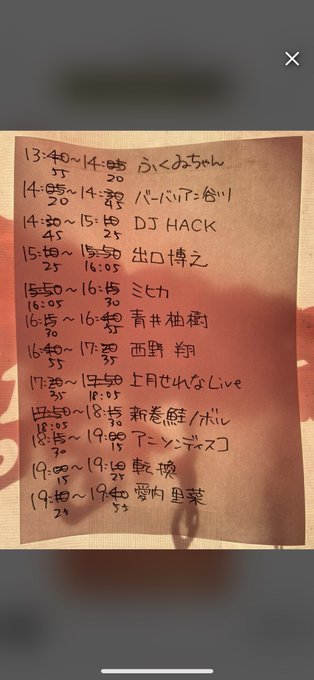 13:40~14:05 ふくゐちゃん
55 20
14:05~14:30 バーバリアン谷川
20 45
14:30~15:10 DJ HACK
45 25
15:10~15:50 出口博之
25 16:05
15:50~16:15 ミヒカ
16:05 30
16:15~16:40 青井柚樹
30 55
16:40~17:20 西野 翔
55 35
17:20~17:50 上月せれなLive
35 18:05
17:50~18:15 新巻鮭ノボル
18:05 30
18:15~19:00 アニソンディスコ
30 15
19:00~19:10 転換
15 25
19:10~19:40 愛内里菜
25 55